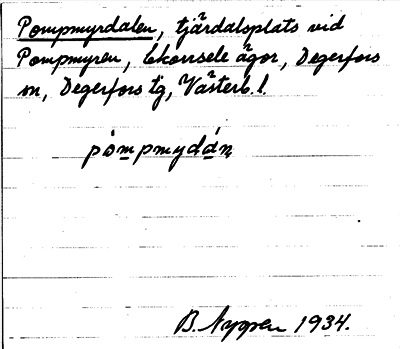 Pompmyrdalen, tjärdalsplats vid
Pompmyren, Ekorrsele ägor, Degerfors
sn, Degerfors tg, Västerb. l.
pömpmydán
B. Nygren 1934.